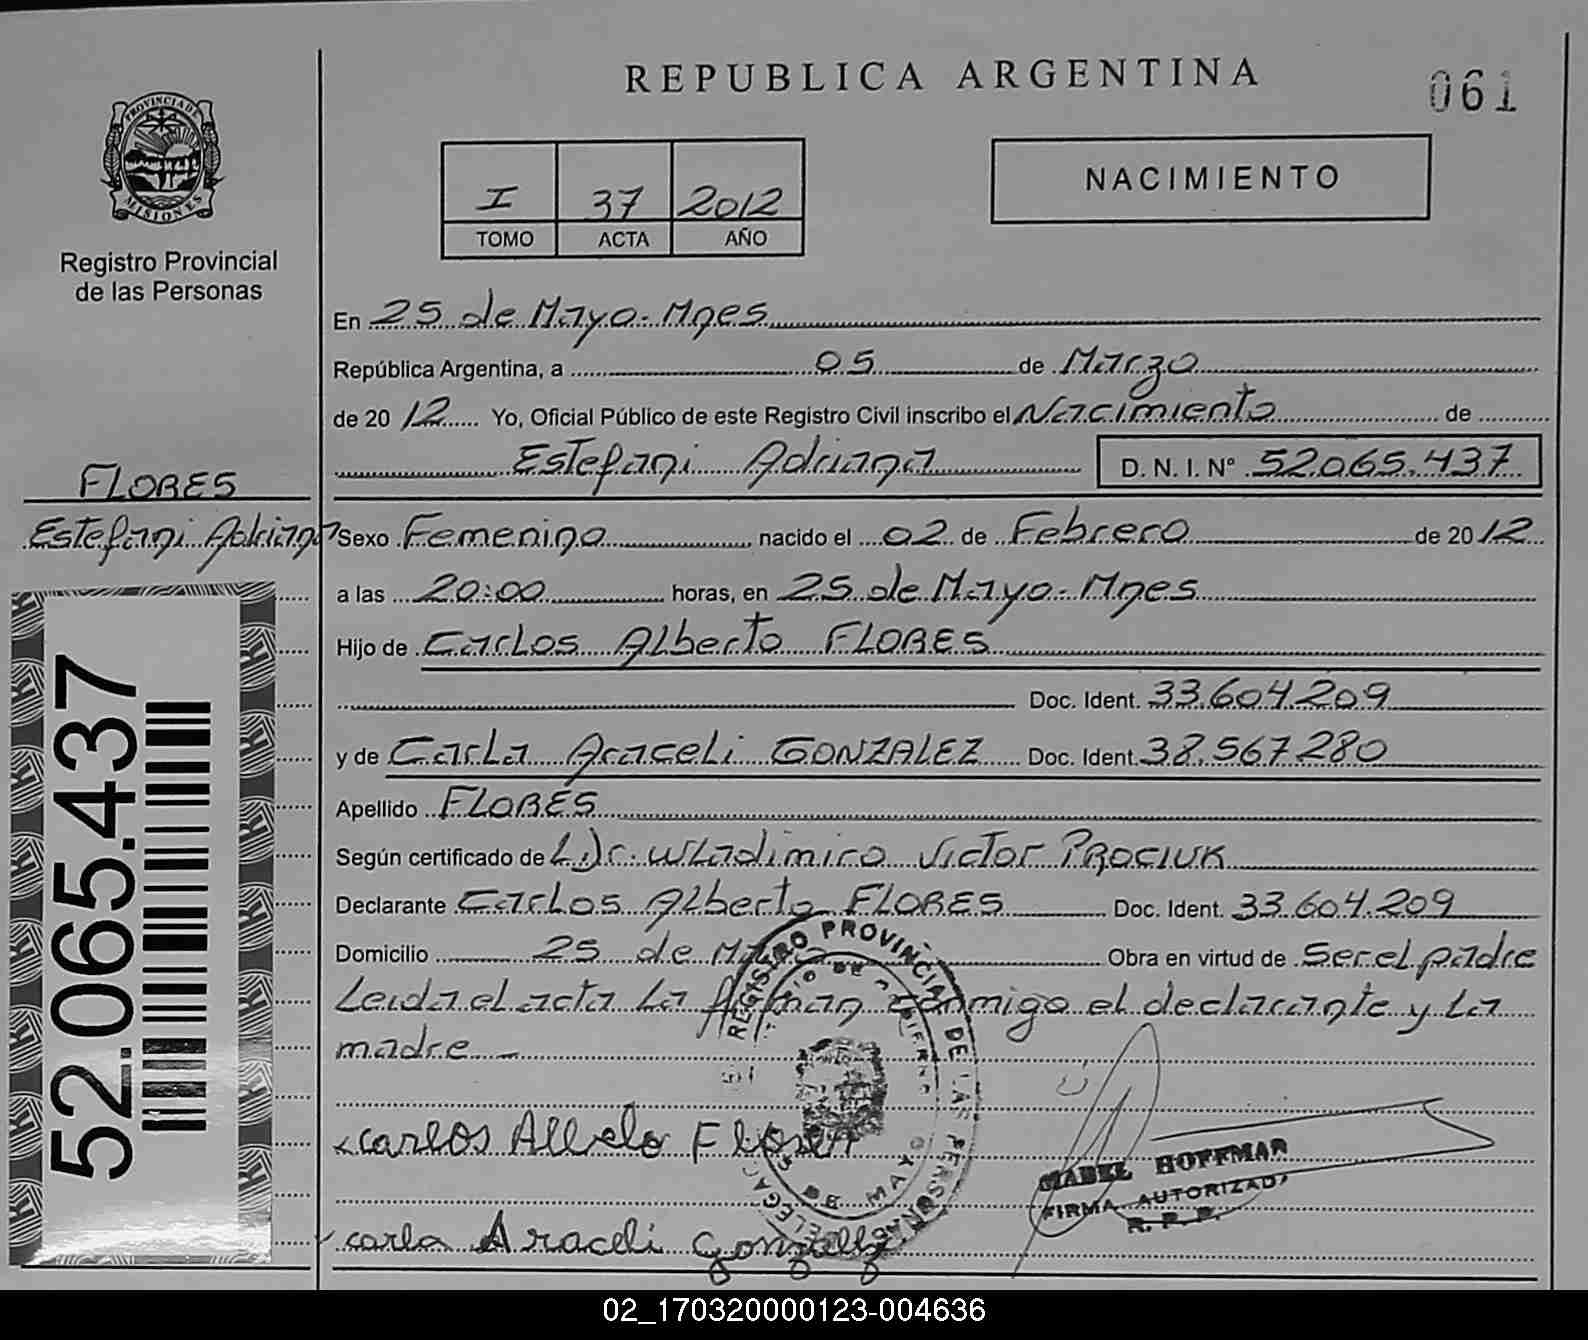 REPUBLICA ARGENTINA
061
PROVINCIA DE MISIONES
Registro Provincial
de las Personas
I 37 2012
TOMO ACTA AÑO
NACIMIENTO
En 25 de Mayo - Mnes
República Argentina, a 05 de Marzo
de 20 12 Yo, Oficial Público de este Registro Civil inscribo el Nacimiento de
Estefani Adriana D. N. I. Nº 52.065.437
FLORES
Estefani Adriana
Sexo Femenino nacido el 02 de Febrero de 20 12
a las 20:00 horas, en 25 de Mayo - Mnes
Hijo de Carlos Alberto FLORES
Doc. Ident. 33.604.209
y de Carla Araceli GONZALEZ Doc. Ident. 38.567.280
Apellido FLORES
Según certificado de L. Dr. Wladimiro Victor PROCIUK
Declarante Carlos Alberto FLORES Doc. Ident. 33.604.209
Domicilio 25 de Mayo Obra en virtud de Ser el padre
Leida el acta La firman conmigo el declarante y La
madre
52.065.437
REGISTRO PROVINCIAL DE LAS PERSONAS
Carlos Alberto Flores
MABEL HOFFMAN
FIRMA AUTORIZADA
R. P. P.
Carla Araceli Gonzalez
02_170320000123-004636